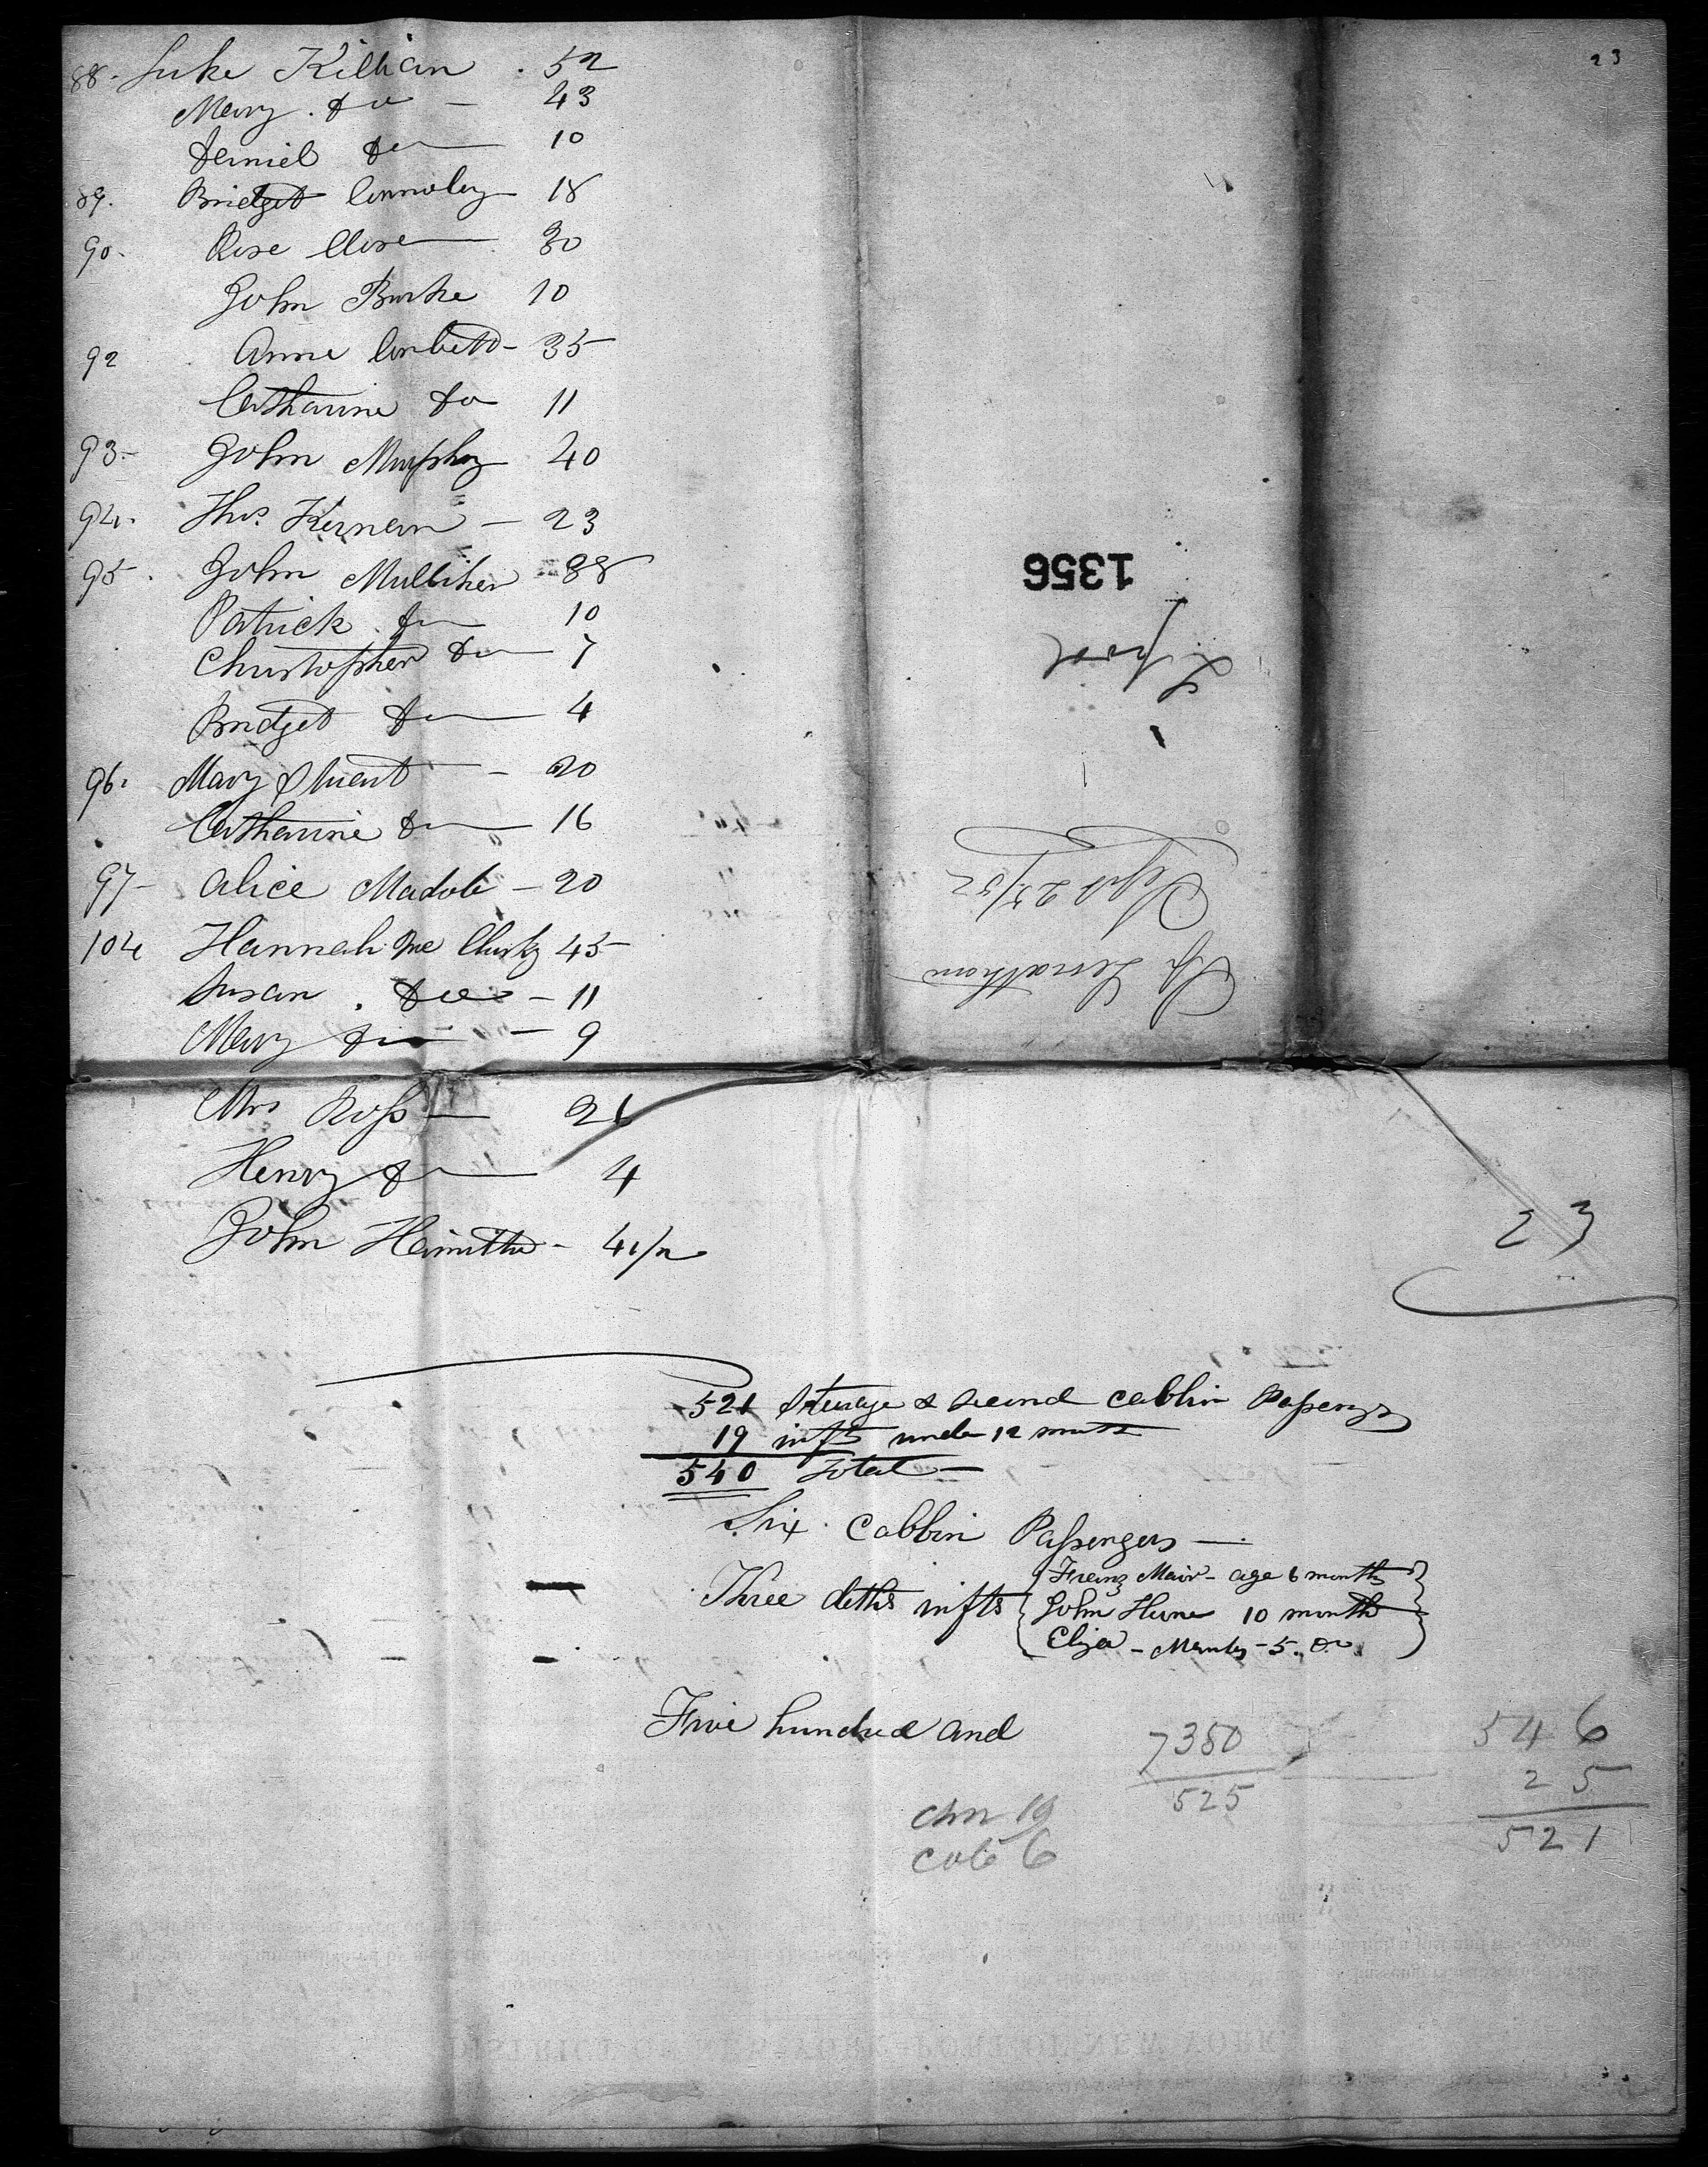 23
88. Luke Killian . 52
Mary . do - 43
Daniel do 10
89. Bridget Connoley 18
90. Rose Close 30
John Burke 10
92 Anne Corbett - 35
Catharine do 11
93- John Murphy 40
94. Thos. Kernan - 23
95. John Milliken 38
Patrick do 10
Christopher do 7
Bridget do 4
96. Mary Stuart - 20
Catharine do 16
97- Alice Madole - 20
104 Hannah Mc Clusky 45
Susan . do - 11
Mary do - 9
Mrs Ross 21
Henry do 4
John - 41/2
1356
L.pool
Sept 25/52
Sp Leviathan
23
521 Sterage & Second Cabbin Passengrs
19 infts under 12 mnths
540 Total
Six Cabbin Passengers
Three deths infts
Franz Mair - age 6 months
John Hune 10 months
Eliza - - 5. do
Five hundred and
7350
525
chn 19
cab 6
546
25
521